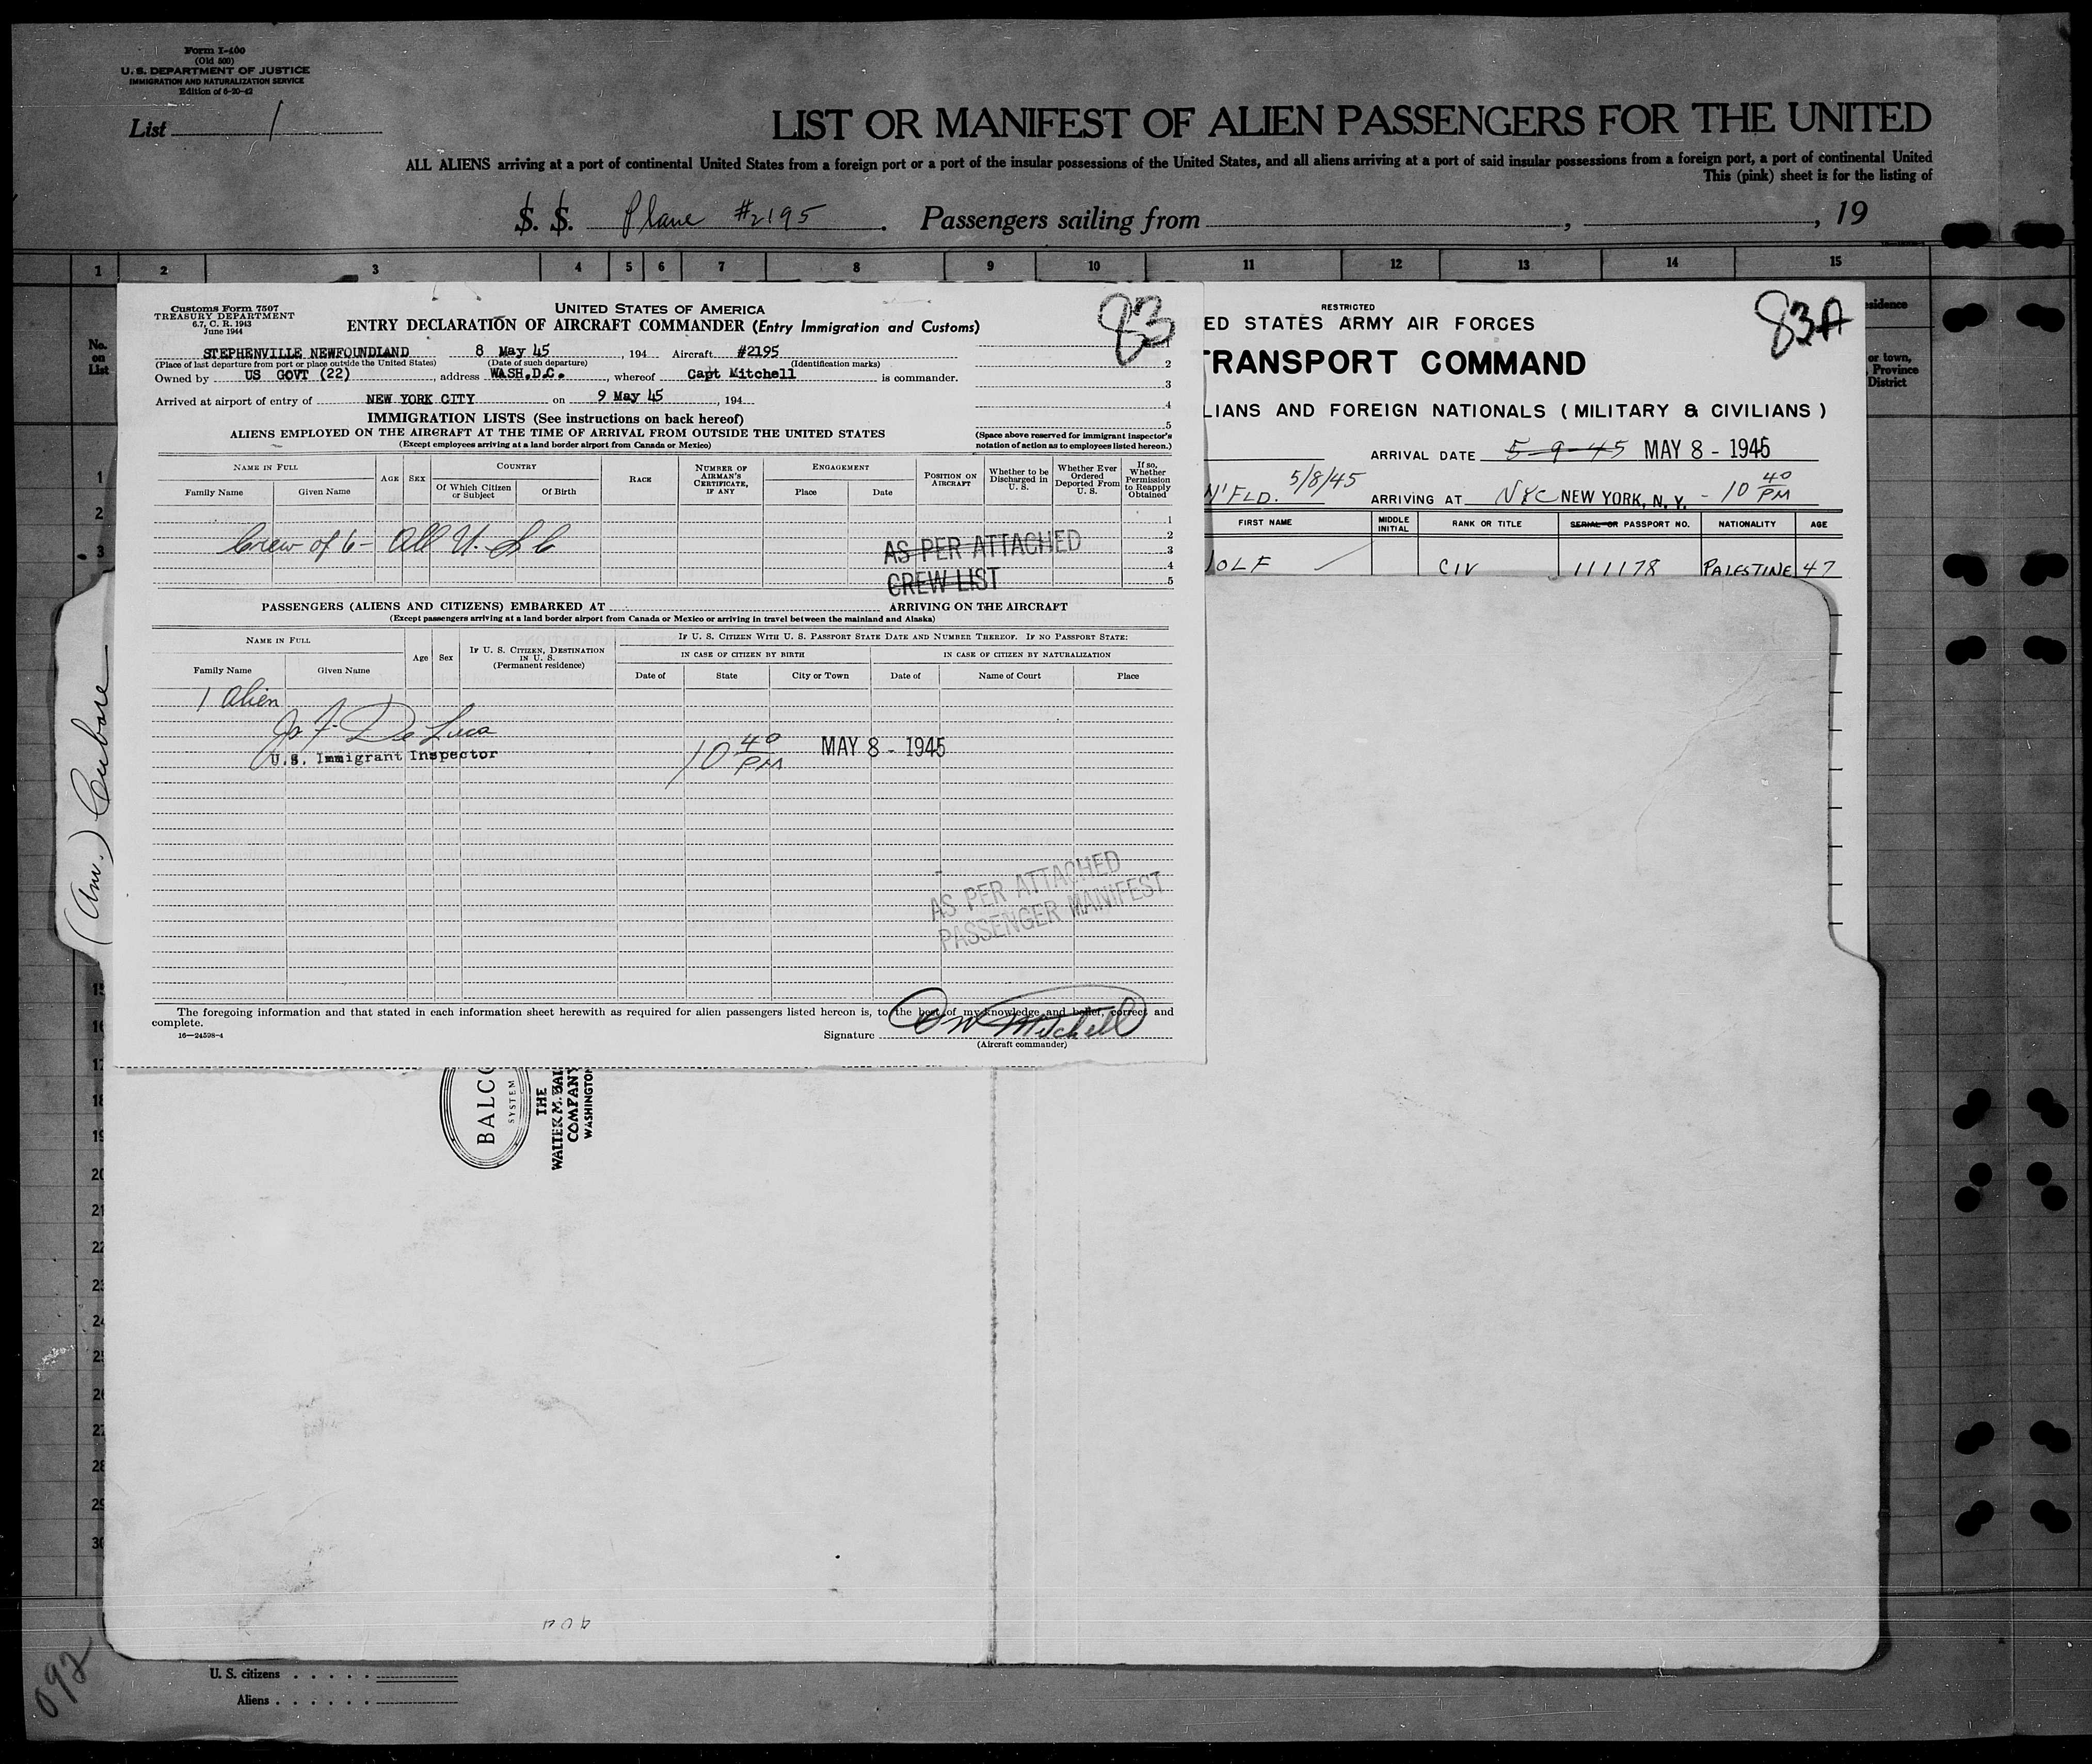 Form I-400
(Old 500)
U. S. DEPARTMENT OF JUSTICE
IMMIGRATION AND NATURALIZATION SERVICE
Edition of 6-20-42
List 1
LIST OR MANIFEST OF ALIEN PASSENGERS FOR THE UNITED
ALL ALIENS arriving at a port of continental United States from a foreign port or a port of the insular possessions of the United States, and all aliens arriving at a port of said insular possessions from a foreign port, a port of continental United
This (pink) sheet is for the listing of
S. S. Plane #2195. Passengers sailing from , , 19
1 2 3 4 5 6 7 8 9 10 11 12 13 14 15
No.
on
List
1
2
3
15
16
17
18
19
20
21
22
23
24
25
26
27
28
29
30
sidence
or town,
Province
District
Customs Form 7507
TREASURY DEPARTMENT
6.7, C. R. 1943
June 1944
UNITED STATES OF AMERICA
ENTRY DECLARATION OF AIRCRAFT COMMANDER (Entry Immigration and Customs)
83
STEPHENVILLE NEWFOUNDLAND 8 May 45, 194 Aircraft #2195
(Place of last departure from port or place outside the United States) (Date of such departure) (Identification marks)
Owned by US GOVT (22), address WASH.D.C., whereof Capt Mitchell is commander.
Arrived at airport of entry of NEW YORK CITY on 9 May 45, 194
1
2
3
4
5
IMMIGRATION LISTS (See instructions on back hereof)
ALIENS EMPLOYED ON THE AIRCRAFT AT THE TIME OF ARRIVAL FROM OUTSIDE THE UNITED STATES
(Except employees arriving at a land border airport from Canada or Mexico)
(Space above reserved for immigrant inspector's
notation of action as to employees listed hereon.)
NAME IN FULL
Family Name Given Name
AGE SEX
COUNTRY
Of Which Citizen or Subject Of Birth
RACE
NUMBER OF AIRMAN'S CERTIFICATE, IF ANY
ENGAGEMENT
Place Date
POSITION ON AIRCRAFT
Whether to be Discharged in U. S.
Whether Ever Ordered Deported From U. S.
If so, Whether Permission to Reapply Obtained
1
2
3
4
5
Crew of 6 - All U.S.C
AS PER ATTACHED
CREW LIST
PASSENGERS (ALIENS AND CITIZENS) EMBARKED AT ARRIVING ON THE AIRCRAFT
(Except passengers arriving at a land border airport from Canada or Mexico or arriving in travel between the mainland and Alaska)
NAME IN FULL
Family Name Given Name
Age Sex
IF U. S. CITIZEN, DESTINATION IN U. S.
(Permanent residence)
IF U. S. CITIZEN WITH U. S. PASSPORT STATE DATE AND NUMBER THEREOF. IF NO PASSPORT STATE:
IN CASE OF CITIZEN BY BIRTH IN CASE OF CITIZEN BY NATURALIZATION
Date of State City or Town Date of Name of Court Place
1 Alien
Jos F. De Luca
U.S. Immigrant Inspector
10 40 PM MAY 8 - 1945
AS PER ATTACHED
PASSENGER MANIFEST
The foregoing information and that stated in each information sheet herewith as required for alien passengers listed hereon is, to the best of my knowledge and belief, correct and
complete.
16—24598-4
Signature O W Mitchell
(Aircraft commander)
RESTRICTED
83A
ED STATES ARMY AIR FORCES
TRANSPORT COMMAND
LIANS AND FOREIGN NATIONALS ( MILITARY & CIVILIANS )
ARRIVAL DATE 5-9-45 MAY 8 - 1945
N'FLD. 5/8/45 ARRIVING AT NYC NEW YORK, N. Y. - 10 40 PM
FIRST NAME MIDDLE INITIAL RANK OR TITLE SERIAL OR PASSPORT NO. NATIONALITY AGE
OLF CIV 111178 PALESTINE 47
(Am.)
BALCO
SYSTEM
THE
WALTER M. BAL
COMPANY
WASHINGTON
404
092
U. S. citizens
Aliens